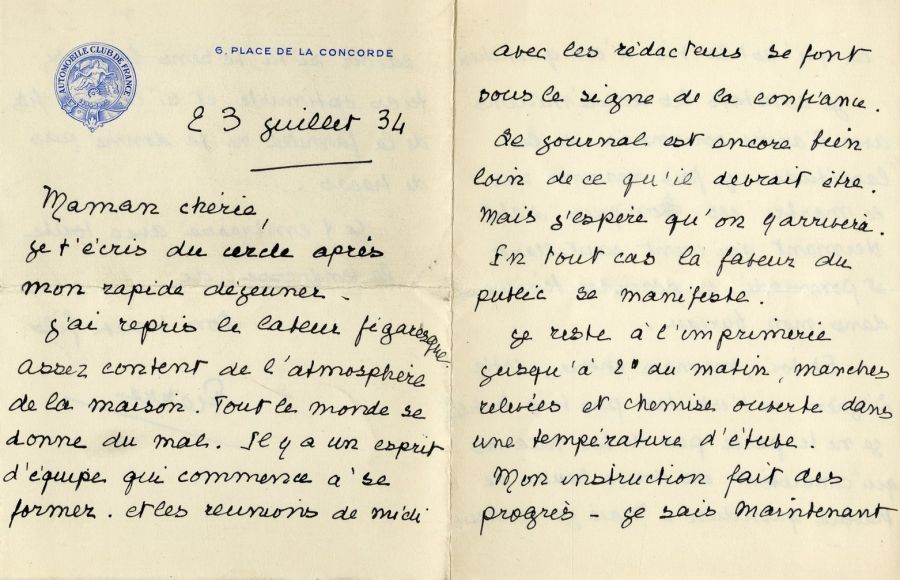 AUTOMOBILE CLUB DE FRANCE
6, PLACE DE LA CONCORDE
3 juillet 34
Maman chérie,
je t'écris du cercle après
mon rapide déjeuner.
J'ai repris le labeur figaresque
assez content de l'atmosphère
de la maison Tout le monde se
donne du mal. Il y a un esprit
d'équipe qui commence à se
former. et les réunions de midi
avec les rédacteurs se font
sous le signe de la confiance.
Le journal est encore bien
loin de ce qu'il devrait être.
Mais j'espère qu'on y arrivera.
En tout cas la faveur du
public se manifeste.
Je reste à l'imprimerie
jusqu'à 2h du matin, manches
relevées et chemise ouverte dans
une température d'étuve.
Mon instruction fait des
progrès - je sais maintenant